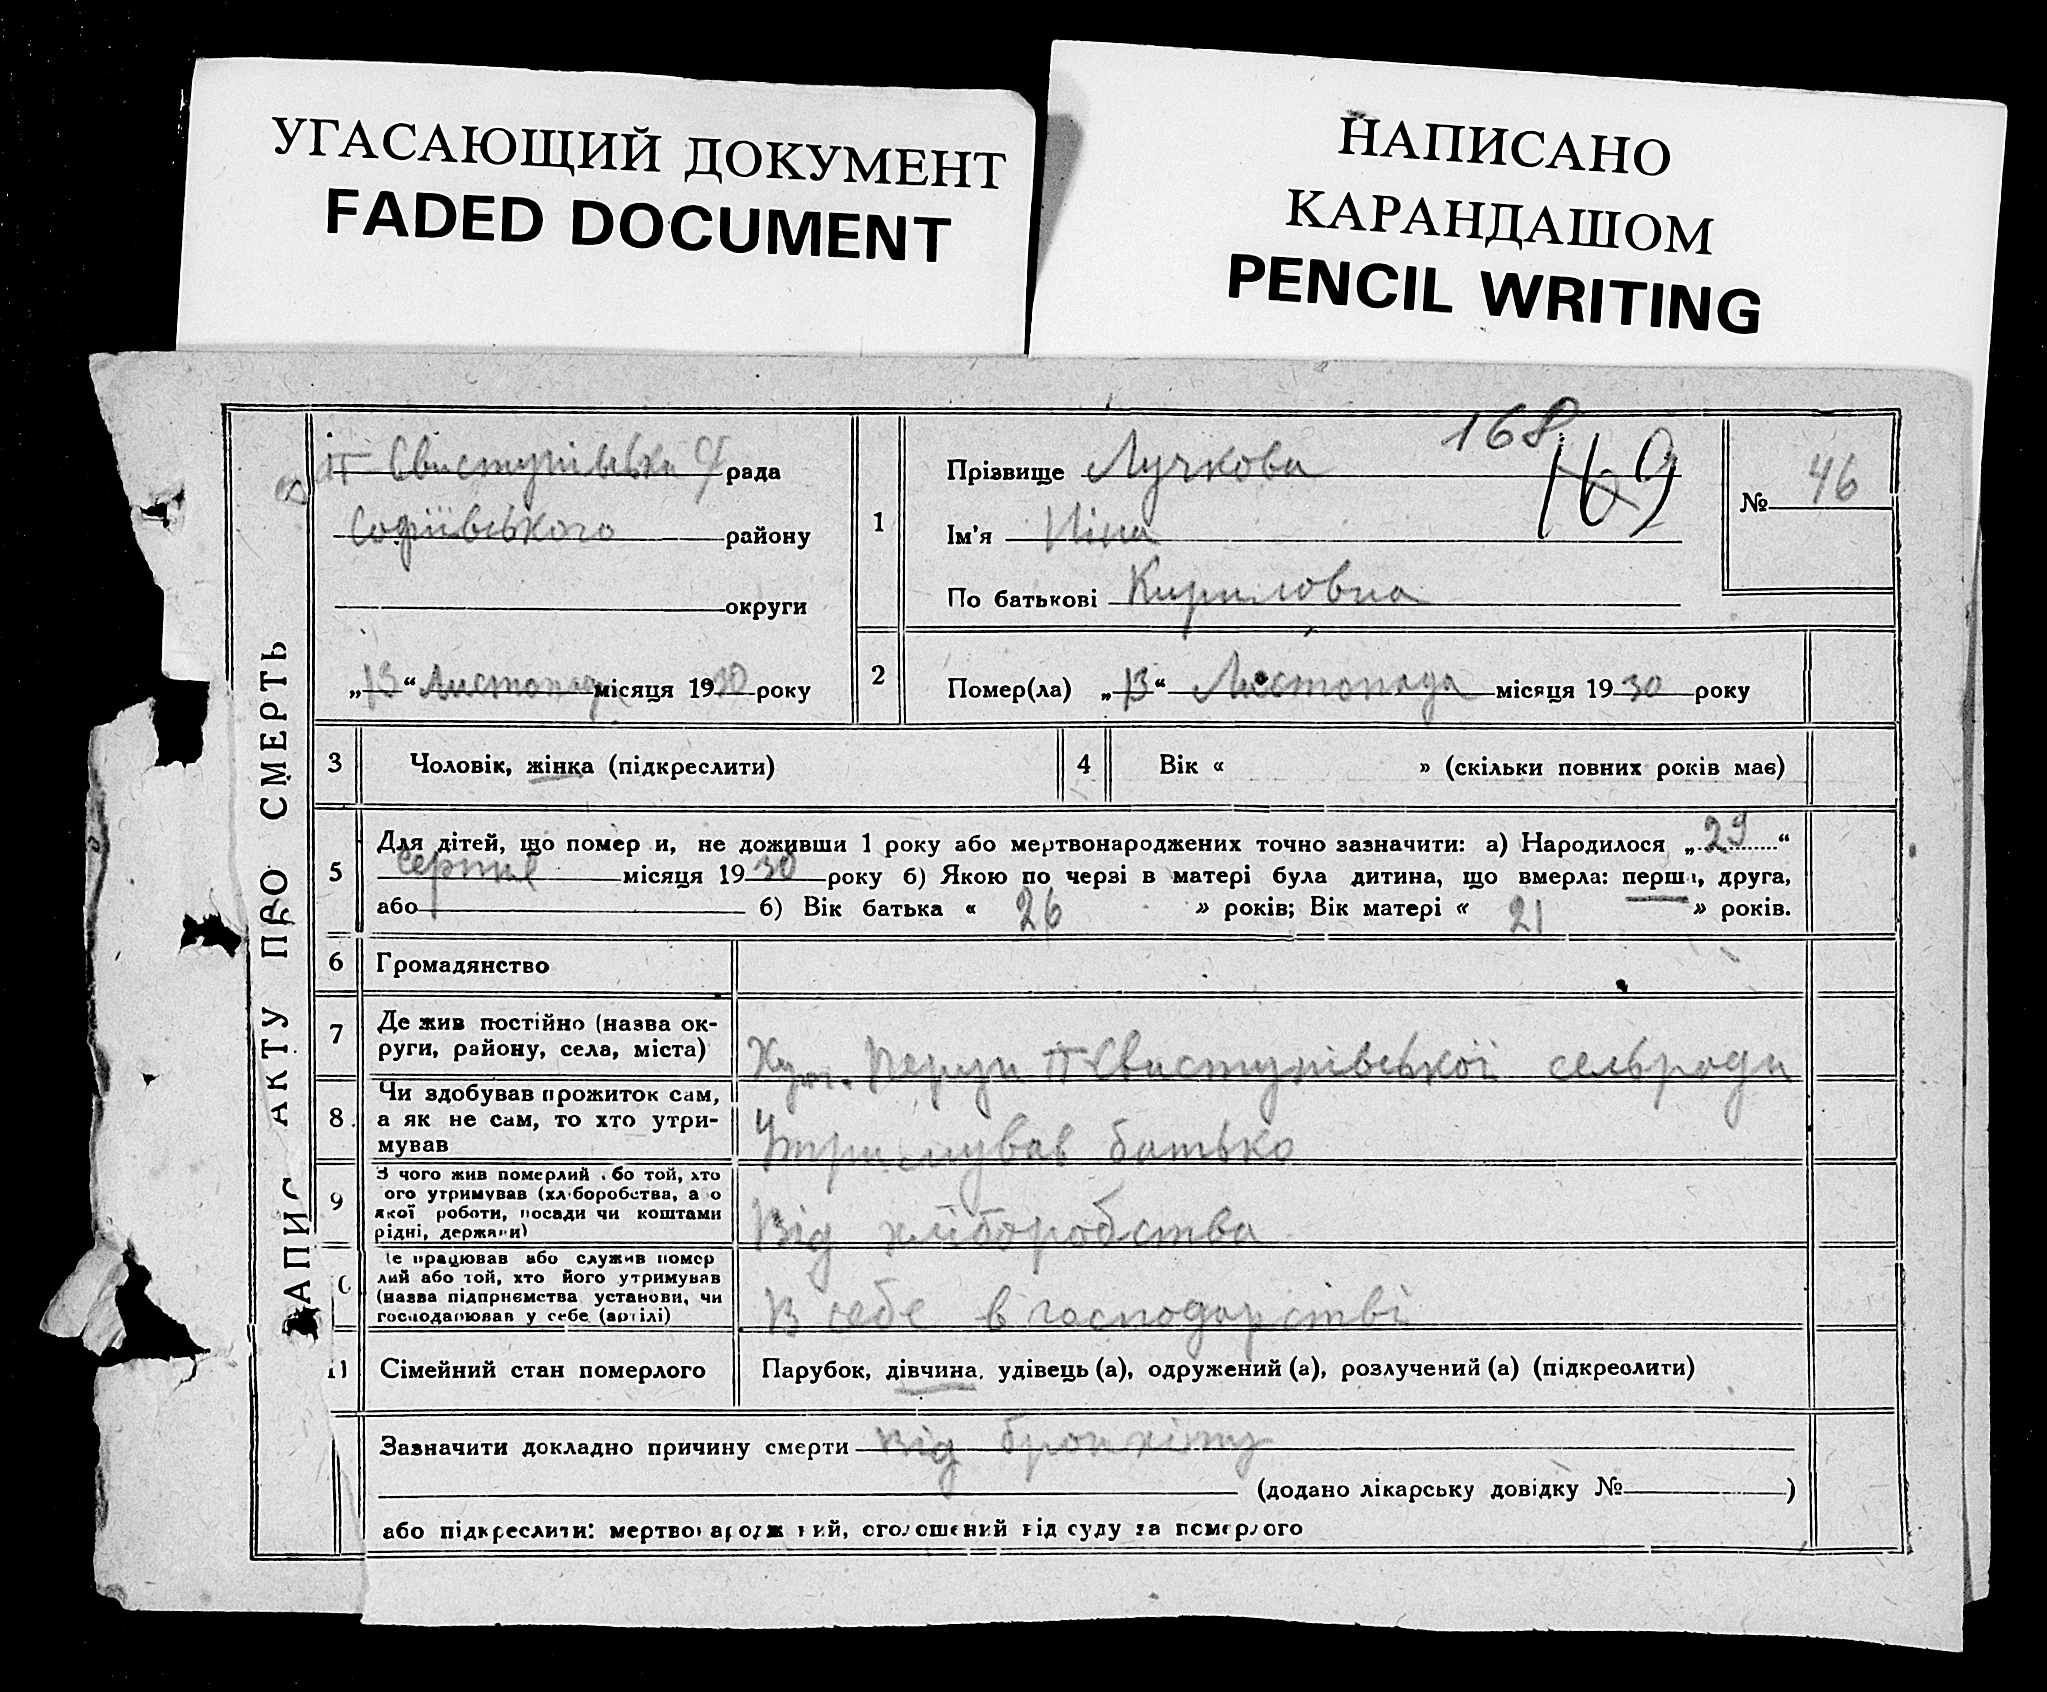 УГАСАЮЩИЙ ДОКУМЕНТ
FADED DOCUMENT
НАПИСАНО
КАРАНДАШОМ
PENCIL WRITING
АПИС АКТУ ПРО СМЕРТЬ
П Свистунівська рада
Софіївського району
округи
„13“ Листопада місяця 1930 року
1
Прізвище Лучкова
168
169
Ім'я Ніна
По батькові Кириловна
№ 46
2
Помер(ла) „13“ Листопада місяця 1930 року
3
Чоловік, жінка (підкреслити)
4
Вік « » (скільки повних років має)
5
Для дітей, що помер и, не доживши 1 року або мертвонароджених точно зазначити: а) Народилося „29“
серпня місяця 1930 року б) Якою по черзі в матері була дитина, що вмерла: перша, друга,
або б) Вік батька « 26 » років; Вік матері « 21 » років.
6
Громадянство
7
Де жив постійно (назва ок-
руги, району, села, міста)
Хут. П-Свистунівської сельради
8.
Чи здобував прожиток сам,
а як не сам, то хто утри-
мував
Утримував батько
9
З чого жив померлий бо той, хто
ого утримував (хліборобства, а о
якої роботи, посади чи коштами
рідні, держави)
Від хліборобства
0
е працював або служив помер
лий або той, хто його утримував
(назва підприємства установи, чи
господарював у себе (артілі)
В себе в господарстві
11
Сімейний стан померлого
Парубок, дівчина, удівець (а), одружений (а), розлучений (а) (підкреслити)
Зазначити докладно причину смерти від бронхіту
(додано лікарську довідку № )
або підкреслити: мертвонароджений, оголошений від суду за померлого